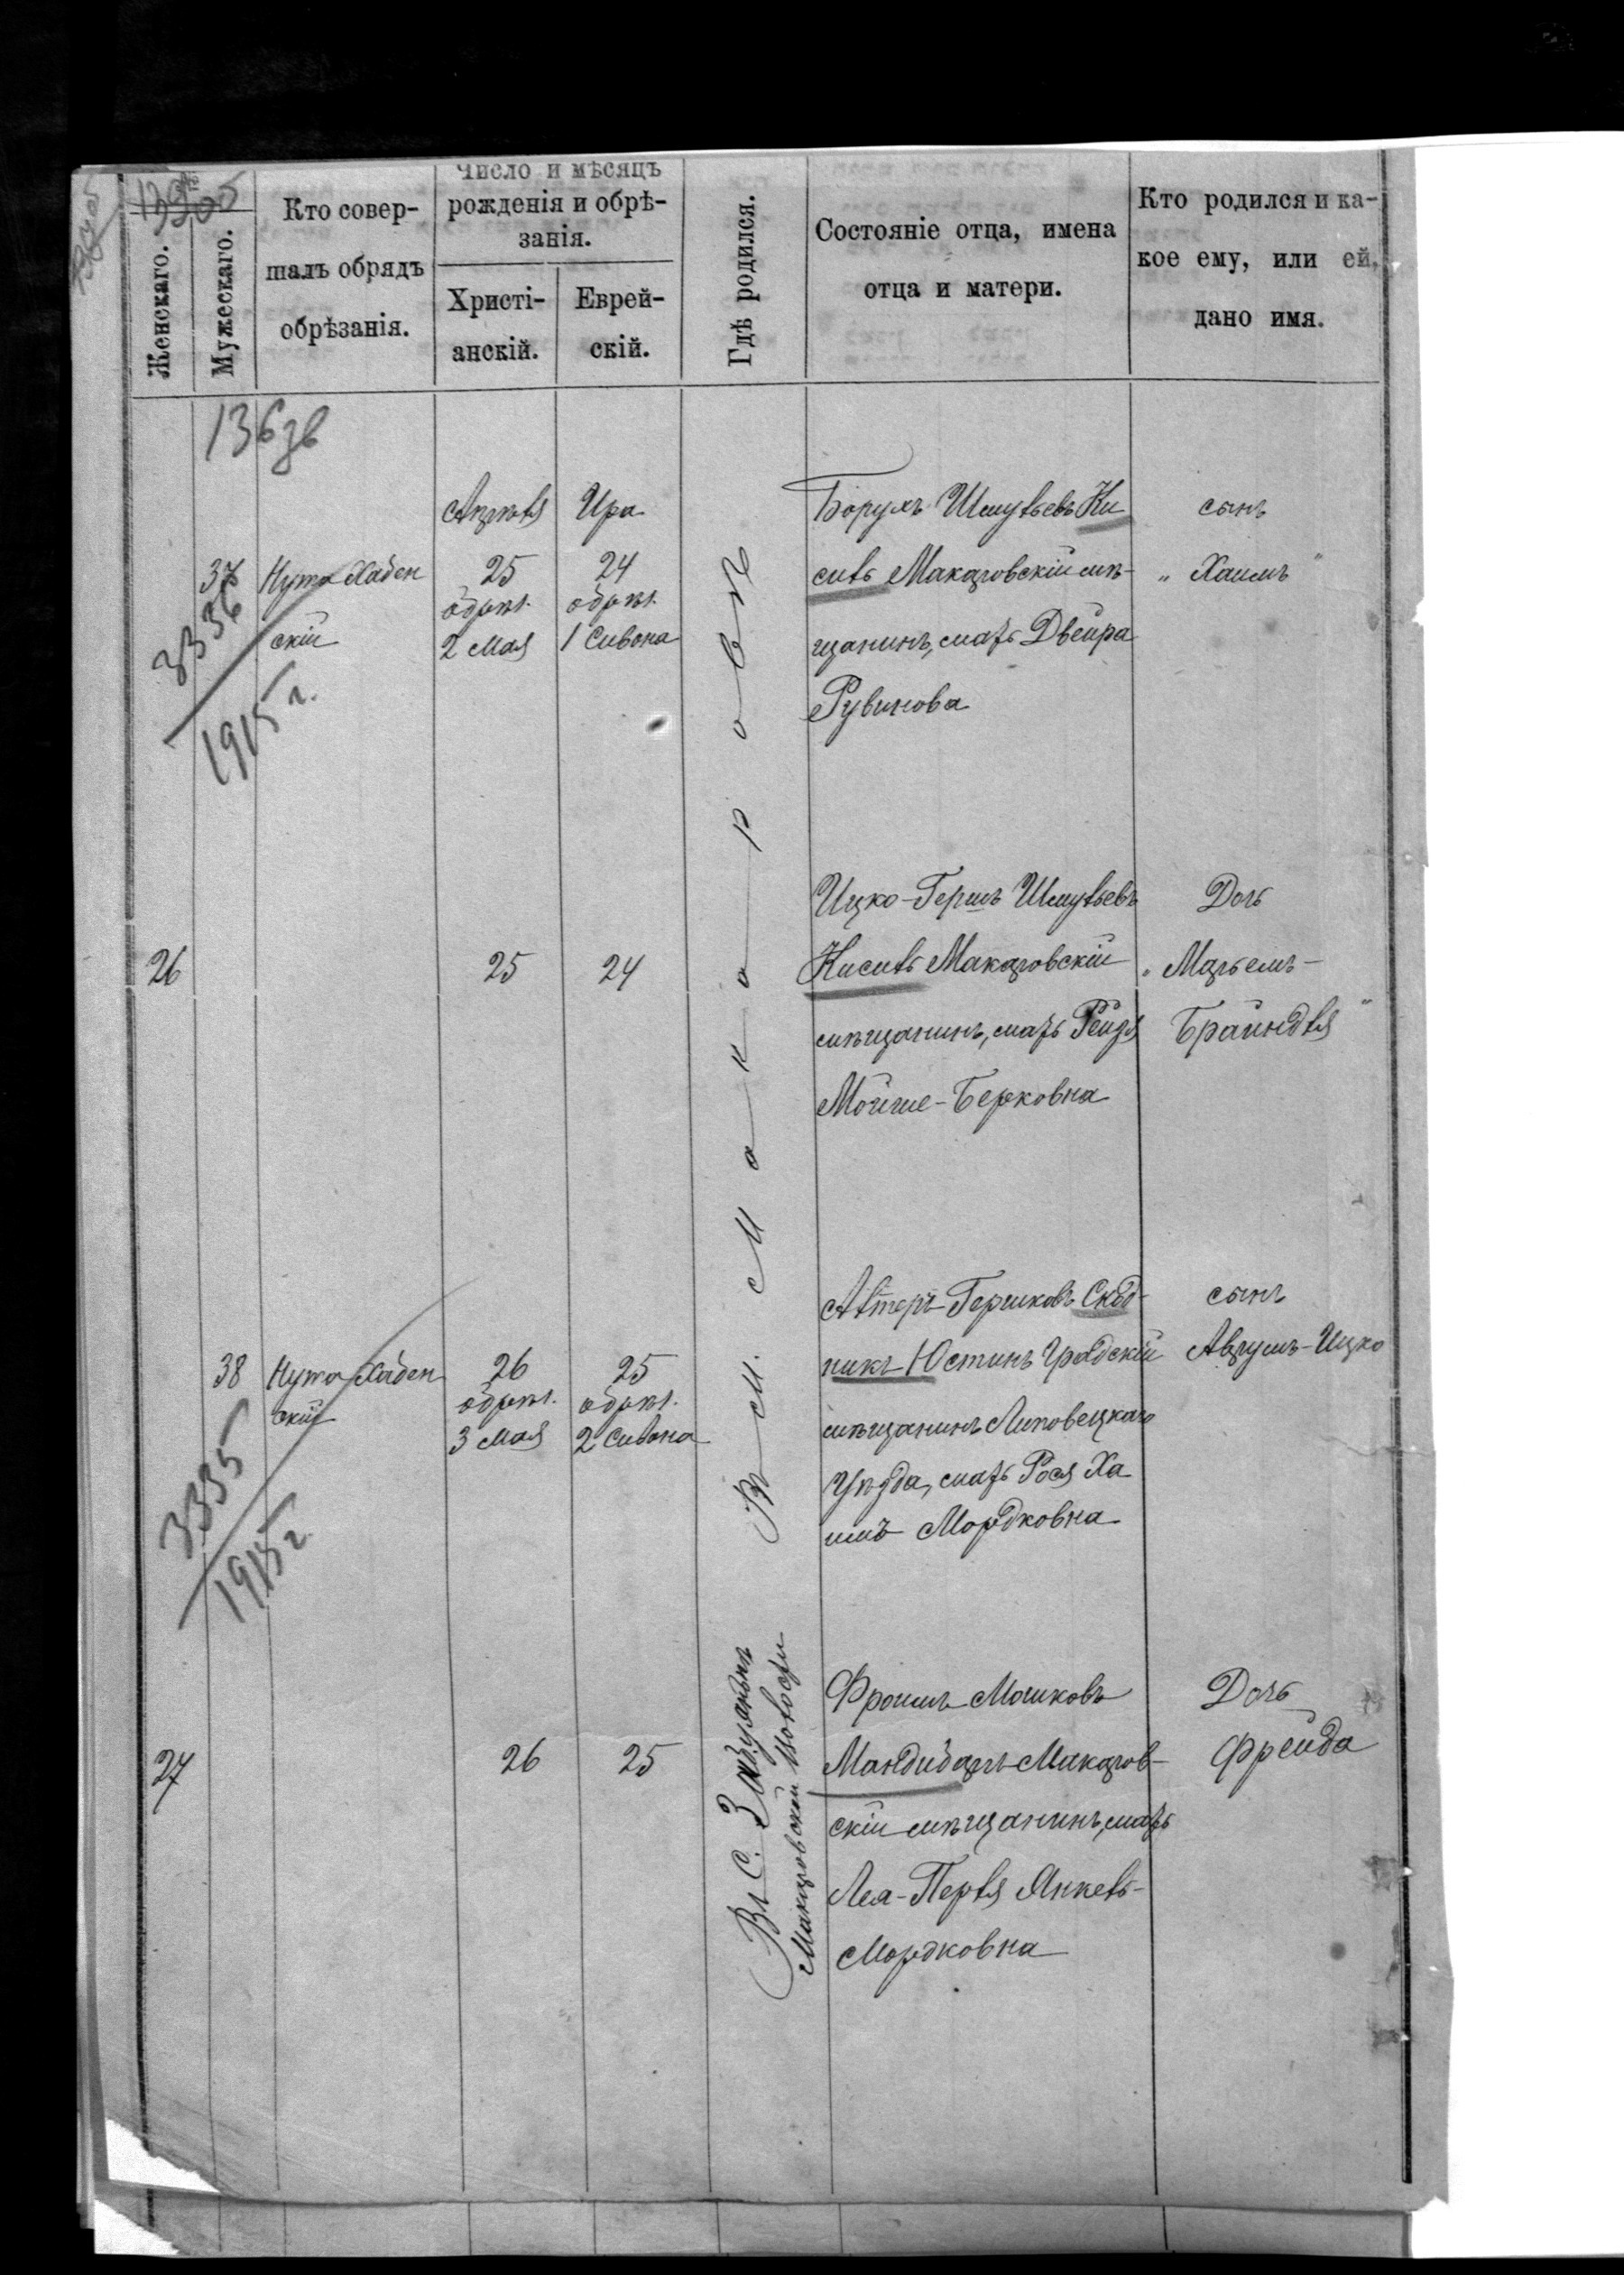 №
Женскаго.
Мужескаго.
Кто совер-
шалъ обрядъ
обрѣзанія.
Число и мѣсяцъ
рожденія и обрѣ-
занія.
Христі-
анскій.
Еврей-
скій.
Гдѣ родился.
Состояніе отца, имена
отца и матери.
Кто родился и ка-
кое ему, или ей,
дано имя.
136
37
3336
1915 г.
Нута
скій
Апрѣля
25
обрѣз.
2 Мая
Ира
24
обрѣз.
1 Сивона
Въ м. Макаровѣ
Борухъ Шмульевъ Ки
сель Макаровскій мѣ-
щанинъ, мать Двейра
Рувинова
сынъ
„Хаимъ"
26
25
24
Ицко-Гершъ Шмульевъ
Кисель Макаровскій
мѣщанинъ, мать Рейзя
Мойше-Берковна
Дочь
„Марьемъ-
Брайндля"
38
3335
1915 г.
Нута
скій
26
обрѣз.
3 Мая
25
обрѣз.
2 Сивона
Альтеръ Гершковъ Склд-
никъ Юстинъ Градскій
мѣщанинъ Липовецкаго
Уѣзда, мать Рося Ха
имъ Мордковна
сынъ
Аврумъ-Ицко
27
26
25
Въ с.
Макаровской Волости
Фроимъ Мошковъ
Макаров-
скій мѣщанинъ, мать
Лея-Перля Янкель-
Мордковна
Дочь
Фрейда